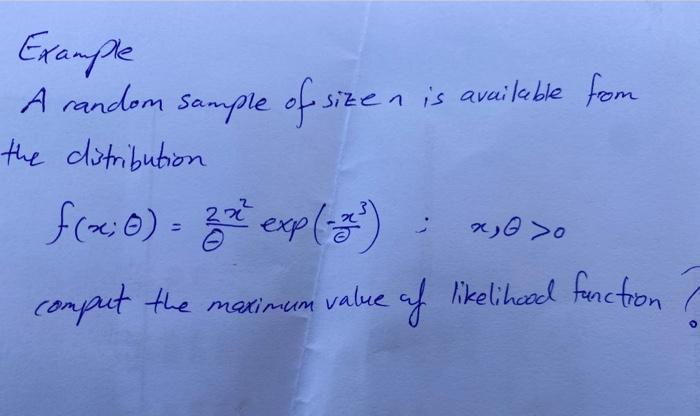 Example
A random sample of size n is available from
the distribution
f(x; Θ) = 2x²/Θ exp(-x³/Θ) ; x, Θ > 0
comput the maximum value of likelihood function ?